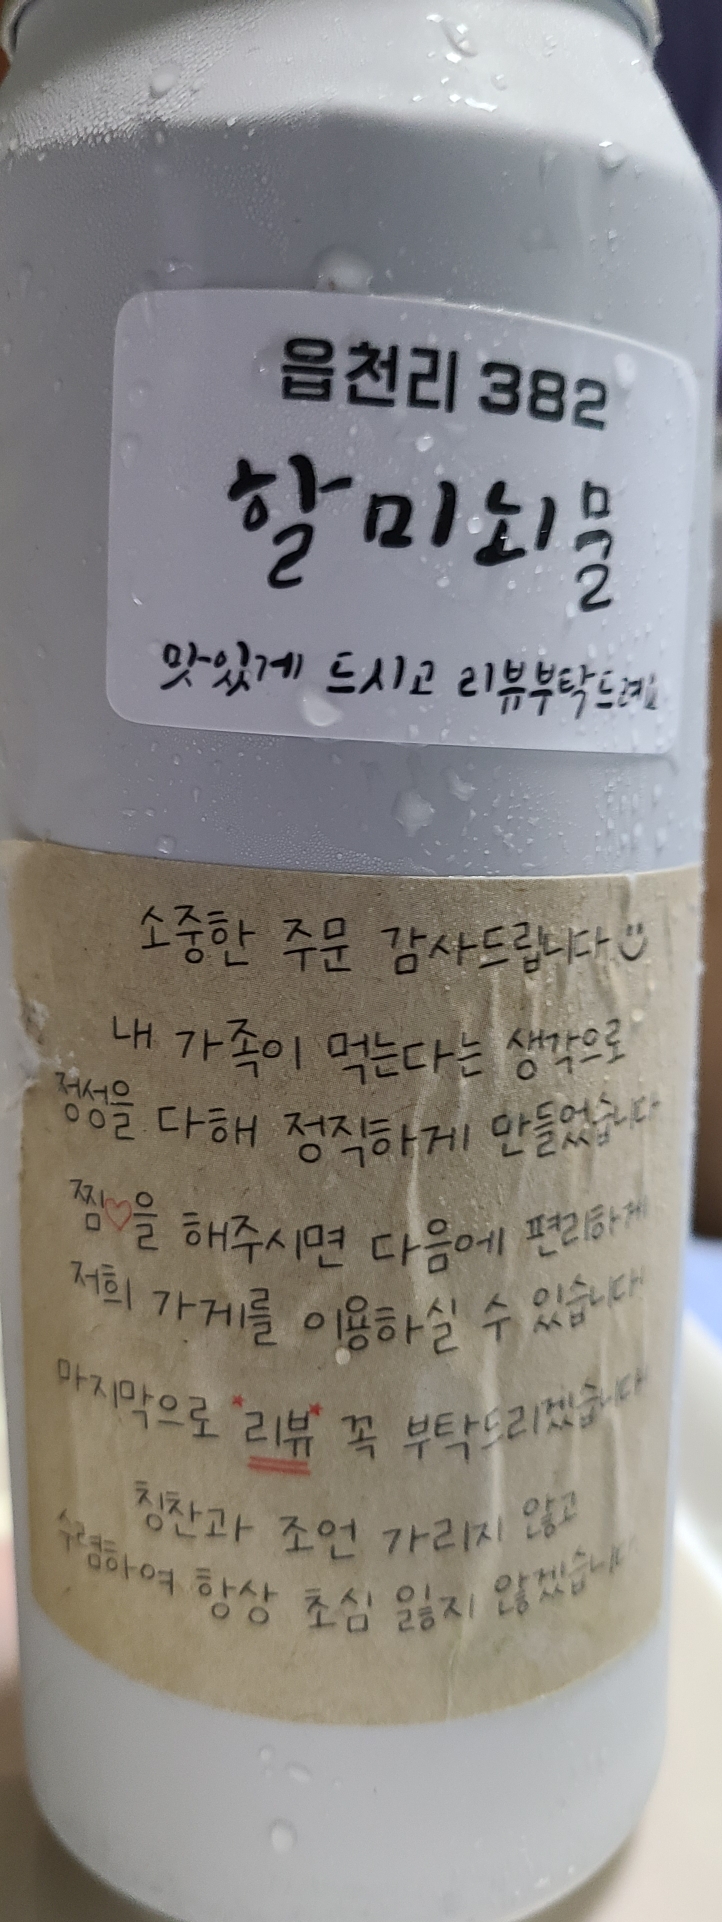 읍천리 382
할미뇌물
맛있게 드시고 리뷰부탁드려요
소중한 주문 감사드립니다
내 가족이 먹는다는 생각으로
정성을 다해 정직하게 만들었습니다
찜♡을 해주시면 다음에 편리하게
저희 가게를 이용하실 수 있습니다
마지막으로 *리뷰* 꼭 부탁드리겠습니다
칭찬과 조언 가리지 않고
수렴하여 항상 초심 잃지 않겠습니다